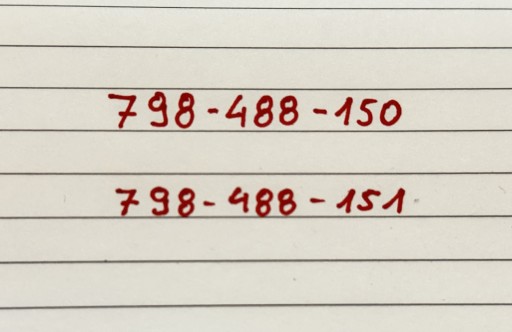 798-488-150
798-488-151